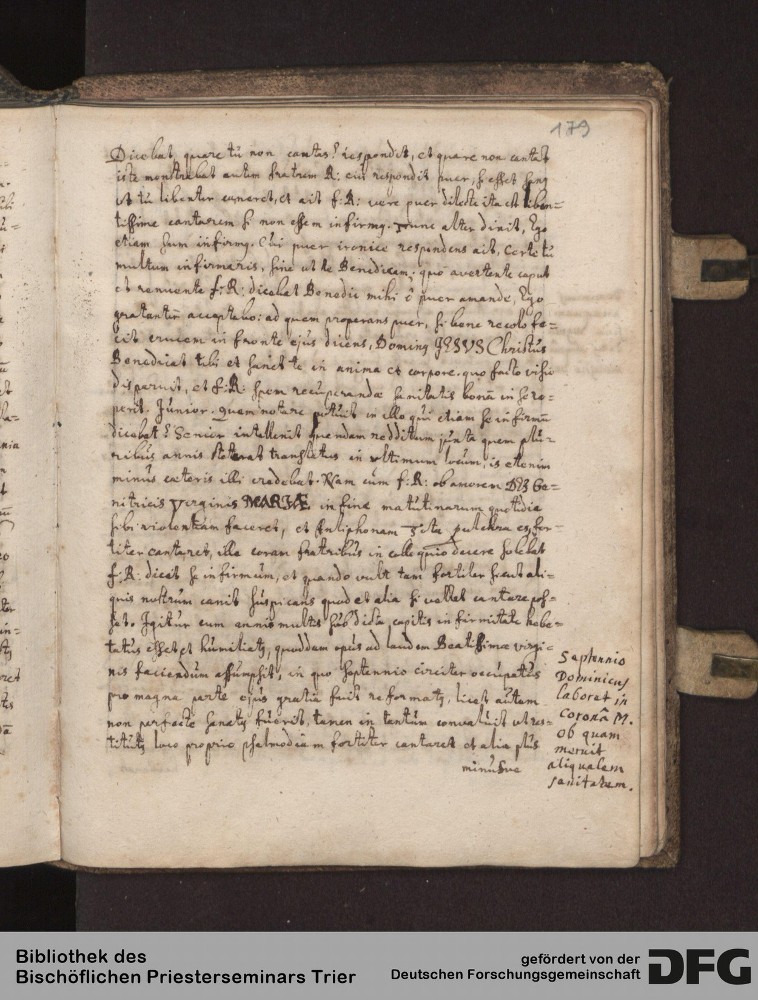 179
Dicebat, quare tū non cantas? respondit, et quare non cantat
iste monstrabat autem fratrem R: cui respondit puer, si esset sanꝯ
ut tū libenter caneret, et ait f: R: vere puer dilecte ita est liben=
tissime cantarem si non essem infirmꝯ. Tunc alter dixit, Ego
etiam sum infirmꝯ. Cui puer ironice respondens ait, Certe tū
multum infirmaris, sine ut te Benedicam; quo avertente caput
et renuente f: R: dicebat Benedic mihi ô puer amande, Ego
gratanter acceptabo: ad quem properans puer, si bene recolo fe=
cit crucem in fronte ejus dicens, Dominꝯ JESVS Christus
Benedicat tibi et sanet te in anima et corpore. quo facto visio
disparuit, et f: R: spem recuperandæ sanitatis bonā in se re=
perit. Junior. Quam notare potuit in illo qui etiam se infirmū
dicebat? Senior intellexit quendam redditum juxta quem plū=
ribus annis steterat translatus in ultimum locum, is etenim
minus cæteris illi credebat. Nam cum f: R: ob amorem DEI Ge=
nitricis Virginis MARIÆ in fine matutinarum quotidie
sibi violentiam faceret, et Antiphonam Tota pulchra es, for=
titer cantaret, ille coram fratribus in colloquio dicere solebat
f: R: dicit se infirmum, et quando vult tam fortiter sicut ali=
quis nostrum canit suspicans quod et alia si vellet cantare pos=
sat. Igitur cum annis multis sub dicta capitis infirmitate hebe=
tatus esset et humiliatꝯ, quoddam opus ad laudem Beatissimæ virgi=
nis faciendum assumpsit, in quo septennio circiter occupatus
pro magna parte ejus gratia fuit reformatꝯ, licet autem
non perfecte sanatꝯ fuerit, tamen in tantum convaluit ut res=
titutꝯ loco proprio psalmodiam fortiter cantaret et alia plus
minusve
Septennio
Dominicus
laborat in
coronā M.
ob quam
meruit
aliqualem
sanitatem.
Bibliothek des
Bischöflichen Priesterseminars Trier
gefördert von der
Deutschen Forschungsgemeinschaft
DFG